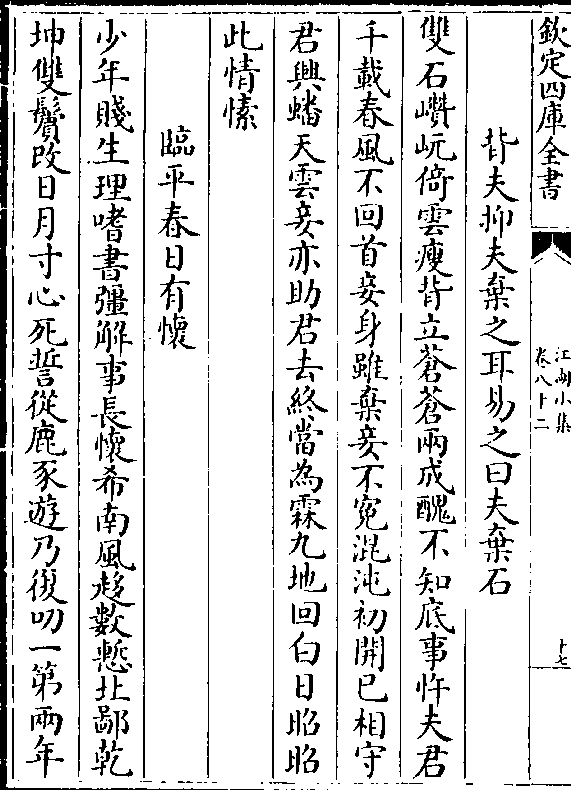 欽定四庫全書
江湖小集
卷八十二
十七
背夫抑夫棄之耳易之曰夫棄石
雙石巑岏倚雲瘦背立蒼蒼兩成醜不知底事忤夫君
千載春風不回首妾身雖棄妾不寃混沌初開已相守
君興蟠天雲妾亦助君去終當為霖九地回白日昭昭
此情愫
臨平春日有懷
少年賤生理嗜書彊解事長懷希南風趍數慙北鄙乾
坤雙鬢改日月寸心死誓從鹿豕遊乃復叨一第兩年